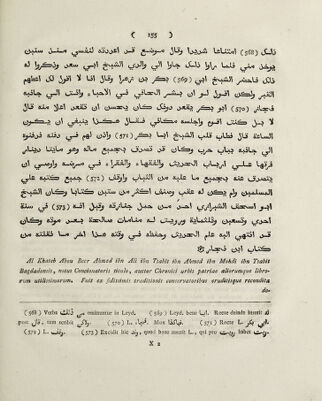 ( 155 )
ذلك (568) امتناعا شديدا وقال موضع قد اعددته لنفسي منذ سنين
يوخذ مني فلما راوا ذلك جاوا الى والدي الشيخ ابي سعد وذكروا له
ذلك فاحضر الشيخ ابي (569) بكر بن زهرا وقال انا لا اقول لك اعطهم
القبر ولكن اقول لو ان بشر الحافي في الاحياء وانت الى جانبه
فجاء (570) ابو بكر يقعد دونك كان يحسن ان تقعد اعلا منه قال
لا بل كنت اقوم واجلسه مكاني فقال هكذا ينبغي ان يكون
الساعة قال فطاب قلب الشيخ ابا بكر (571) واذن لهم في دفنه فدفنوه
الى جانبه بباب حرب وكان قد تصرف بجميع ماله وهو مايتا دينار
فرقها على ارباب الحديث والفقهاء والفقراء في مرضه واوصى ان
يتصرف عنه بجميع ما عليه من الثياب واوقف (572) جميع كتبه على
المسلمين ولم يكن له عقب وصنف اكثر من ستين كتابا وكان الشيخ
ابو اسحق الشيرازي احد من حمل جنازته وقيل انه (573) في سنة
احدى وتسعين وثلثماية ورويت له منامات صالحة بعد موته وكان
قد انتهى اليه علم الحديث وحفظه في وقته هذا اخر ما نقلته من
كتاب ابن النجار
Al Khateb Abou Becr Ahmed ibn Ali ibn Tsabit ibn Ahmed ibn Mohdi ibn Tsabit
Bagdadensis, notus Concionatoris titulo, auctor Chronici urbis patriae aliorumque libro-
rum utilissimorum. Fuit ex fidissimis traditionis conservatoribus eruditisque recondita
do-
(568) Verba ذلك omittuntur in Leyd. (569) Leyd. bene ابا. Recte deinde inserit له
post قال, tum scribit ولكن. (570) L. فجاء. Mox هكذا. (571) Recte L. ابي بكر.
(572) L. ووقف. (573) Excidit hic ولد, quod bene monit L., qui pro ورويت habet وريت.
X 2